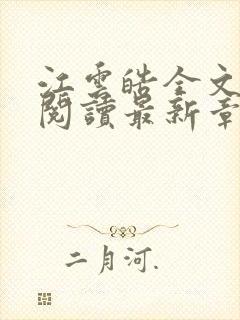 江雲皓全文
閱讀最新章
二月河.